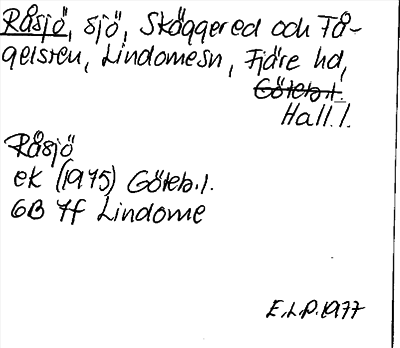 Råsjö, sjö, Skäggered och Tå-
gelsren, Lindomesn, Fjäre hd,
Göteb.l.
Hall.l.
Råsjö
ek (1975) Göteb.l.
6B 7f Lindome
E.L.P.1977